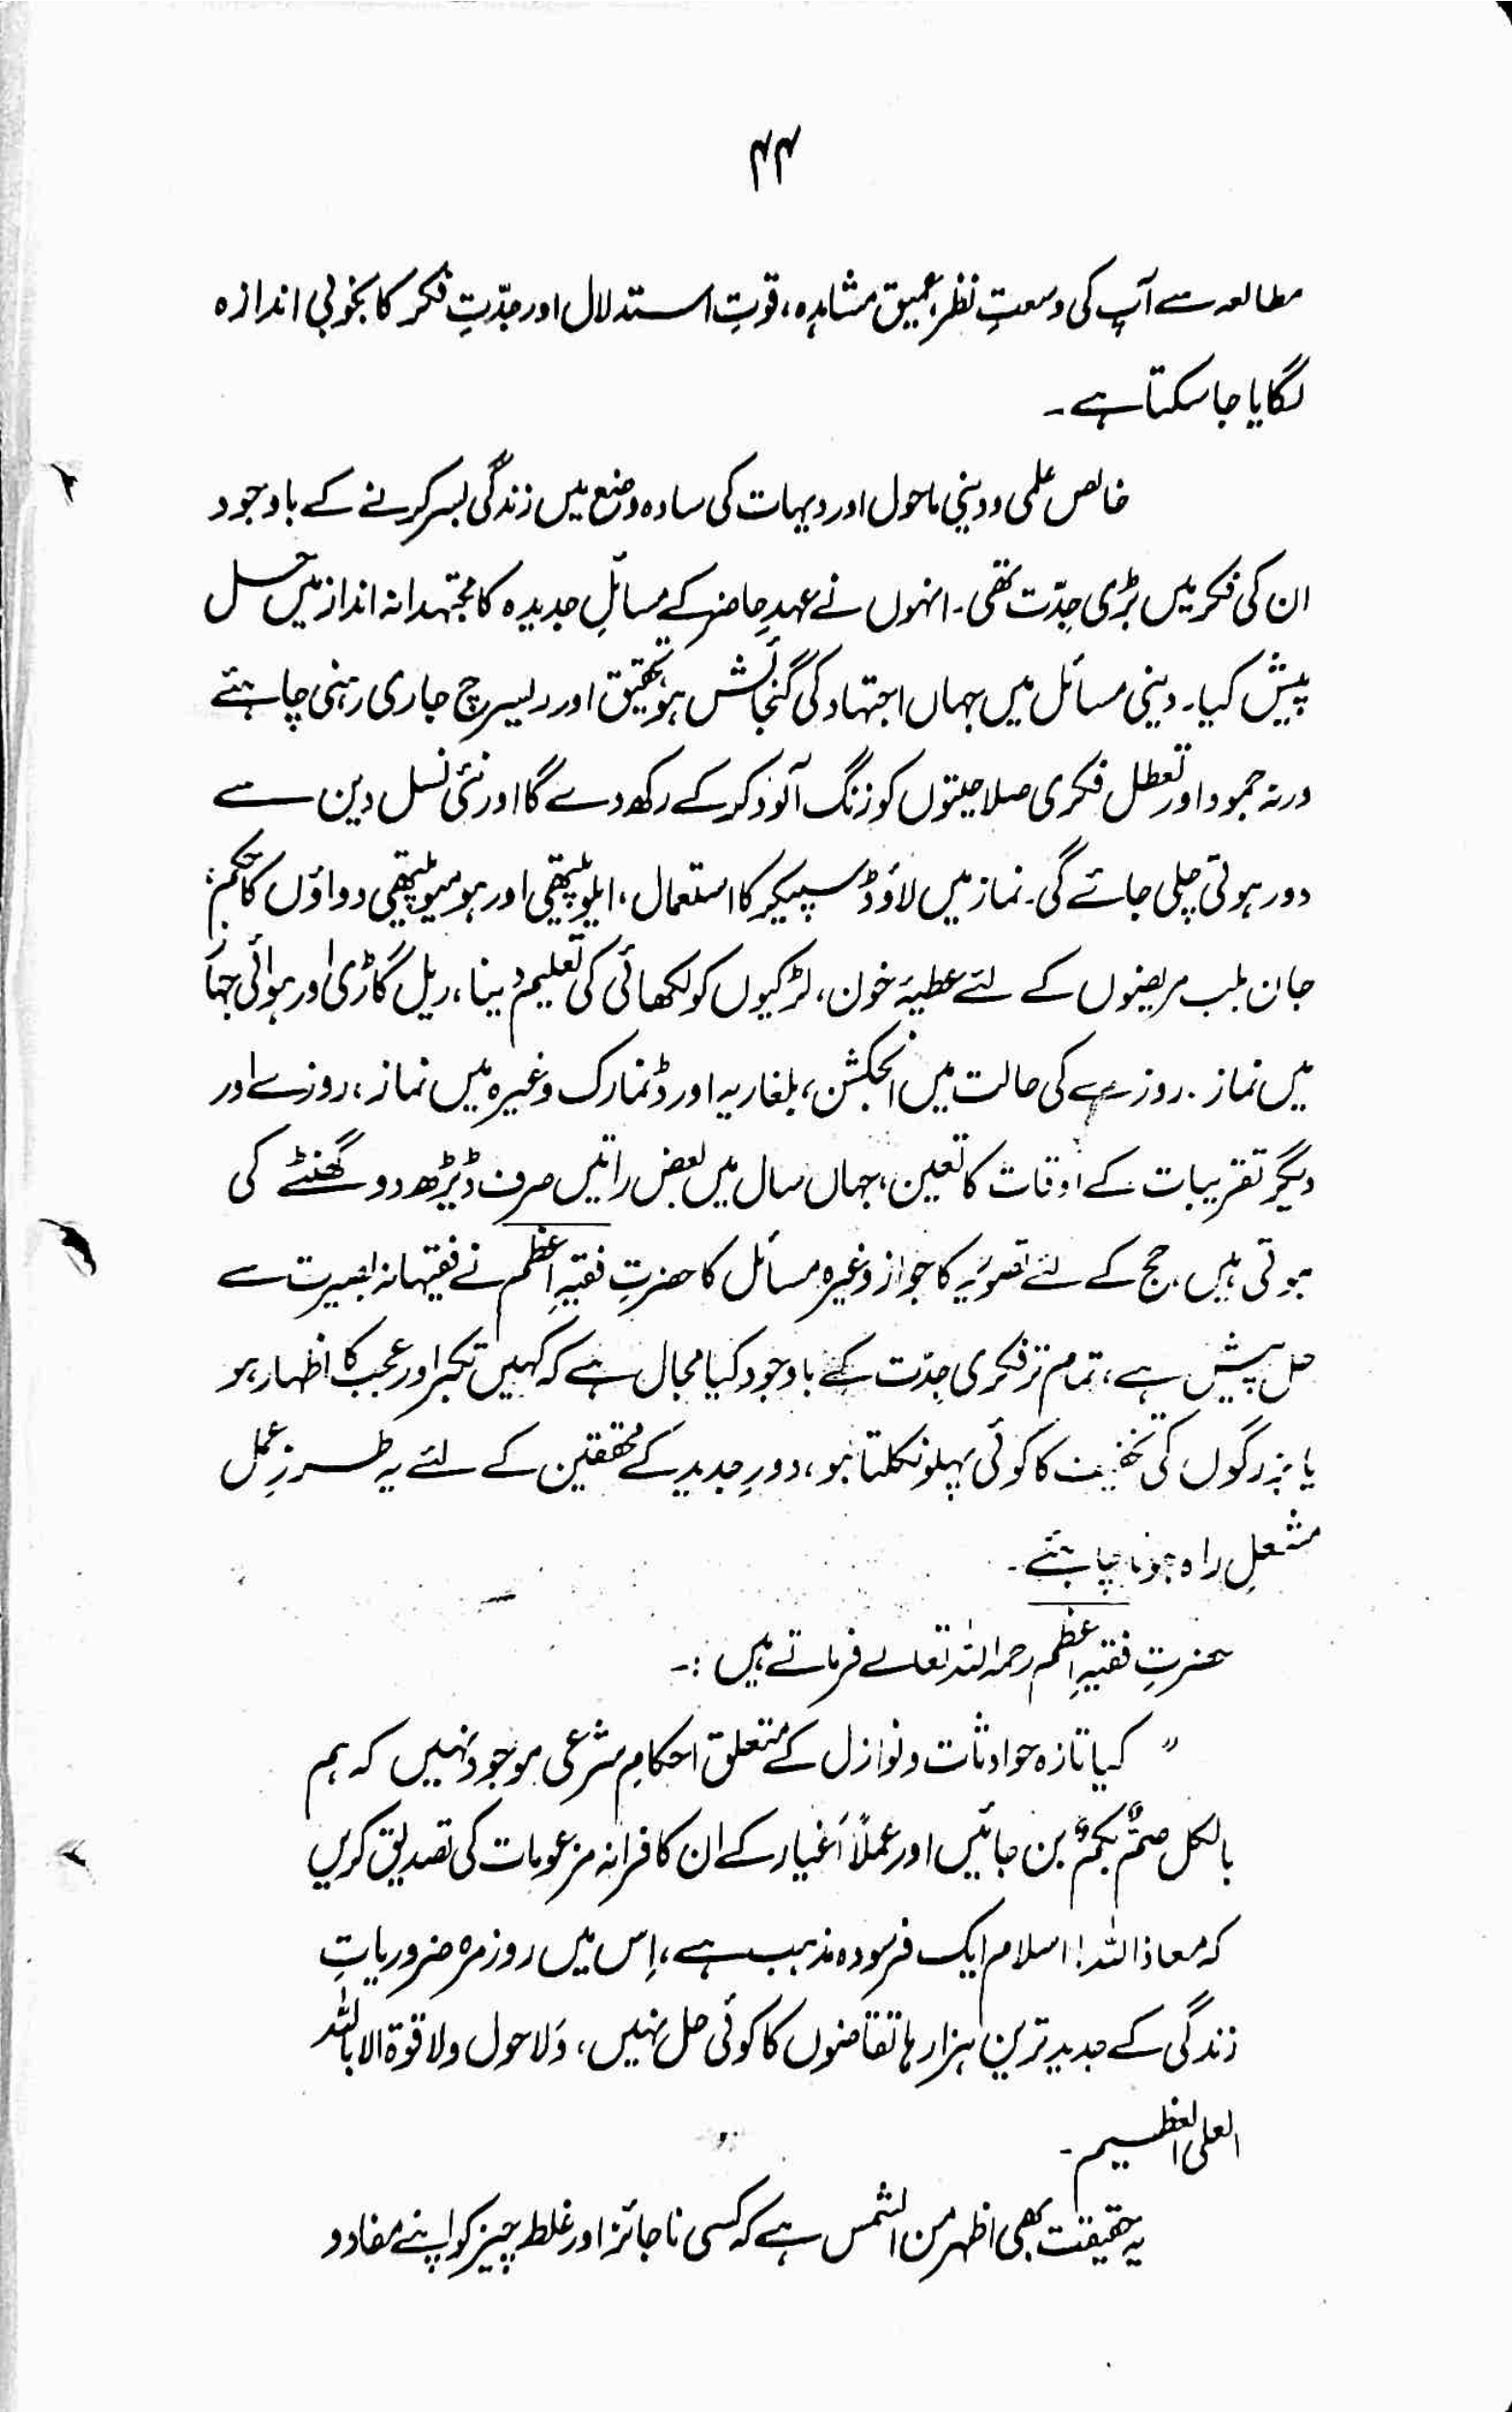 ۴۴
مطالعہ سے آپ کی وسعتِ نظر، عمیق مشاہدہ، قوتِ استدلال اور جدّتِ فکر کا بخوبی اندازہ
لگایا جا سکتا ہے۔
خالص علمی و دینی ماحول اور دیہات کی سادہ وضع میں زندگی بسر کرنے کے باوجود
ان کی فکر میں بڑی جدّت تھی۔ انہوں نے عہدِ حاضر کے مسائلِ جدیدہ کا مجتہدانہ انداز میں حل
پیش کیا۔ دینی مسائل میں جہاں اجتہاد کی گنجائش ہو تحقیق اور ریسرچ جاری رہنی چاہئے
ورنہ جمود اور تعطل فکری صلاحیتوں کو زنگ آلود کر کے رکھ دے گا اور نئی نسل دین سے
دور ہوتی چلی جائے گی۔ نماز میں لاؤڈ سپیکر کا استعمال، ایلوپیتھی اور ہومیوپیتھی دواؤں کا حکم،
جان بلب مریضوں کے لئے عطیۂ خون، لڑکیوں کو لکھائی کی تعلیم دینا، ریل گاڑی اور ہوائی جہاز
میں نماز۔ روزے کی حالت میں انجکشن، بلغاریہ اور ڈنمارک وغیرہ میں نماز، روزے اور
دیگر تقریبات کے اوقات کا تعین، جہاں سال میں بعض راتیں صرف ڈیڑھ دو گھنٹے کی
ہوتی ہیں۔ حج کے لئے تصویر کا جواز وغیرہ مسائل کا حضرتِ فقیہِ اعظم نے فقیہانہ بصیرت سے
حل پیش ہے، تمام تر فکری جدّت کے باوجود کیا مجال ہے کہ کہیں تکبر اور عجب کا اظہار ہو
یا بزرگوں کی تخفیف کا کوئی پہلو نکلتا ہو، دورِ جدید کے محققین کے لئے یہ طرزِ عمل
مشعلِ راہ ہونا چاہئے۔
حضرتِ فقیہِ اعظم رحمہ اللہ تعالےٰ فرماتے ہیں :۔
" کیا تازہ حوادثات و نوازل کے متعلق احکامِ شرعی موجود نہیں کہ ہم
بالکل صمٌّ بکمٌ بن جائیں اور عملاً اَغیار کے ان کافرانہ مزعومات کی تصدیق کریں
کہ معاذ اللہ! اسلام ایک فرسودہ مذہب ہے، اِس میں روزمرہ ضروریاتِ
زندگی کے جدید ترین ہزارہا تقاضوں کا کوئی حل نہیں، وَلا حول ولا قوۃ الا باللہ
العلی العظیم۔"
یہ حقیقت بھی اظہر من الشمس ہے کہ کسی ناجائز اور غلط چیز کو اپنے مفاد و